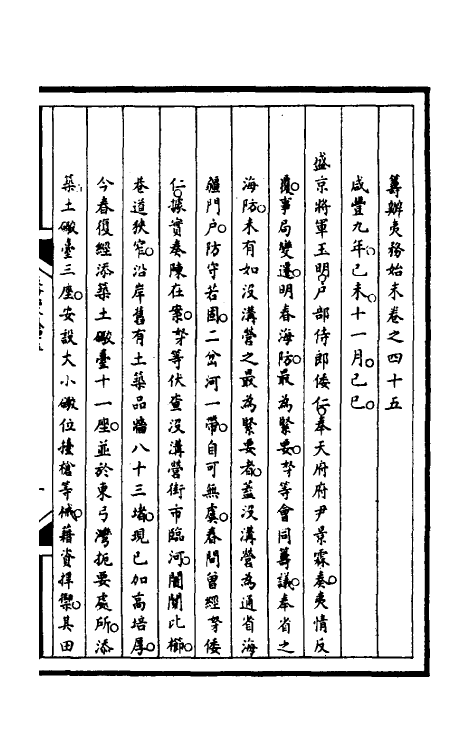 籌辦夷務始末卷之四十五
咸豐九年己未十一月己巳
盛京將軍玉明戶部侍郎倭仁奉天府府尹景霖奏夷情反
覆事局變遷明春海防最為緊要拏等會同籌議奉省之
海防未有如沒溝營之最為緊要者蓋沒溝營為通省海
疆門戶防守若固二岔河一帶自可無虞春間曾經拏倭
仁據實奏陳在案拏等伏查沒溝營街市臨河闤闠比櫛
巷道狹窄沿岸舊有土築品牆八十三堵現已加高培厚
今春復經添築土礮臺十一座並於東弓灣扼要處所添
築土礮臺三座安設大小礮位擡槍等俄藉資捍禦其田